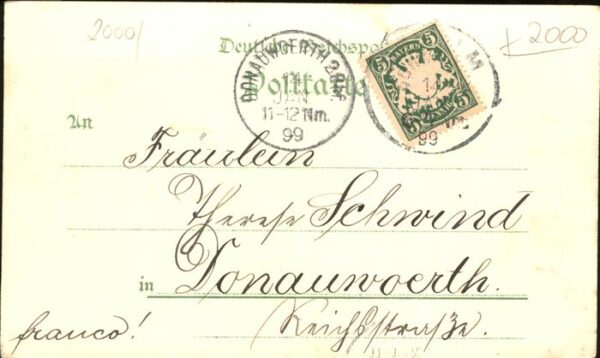 2000/
+2000
Deutsche Reichspost
Postkarte
DONAUWOERTH 2
JAN
11-12 Nm.
99
BAYERN
5 5
5 5
99
An
Fräulein
Therese Schwind
in Donauwoerth.
Reichsstraße.
franco!